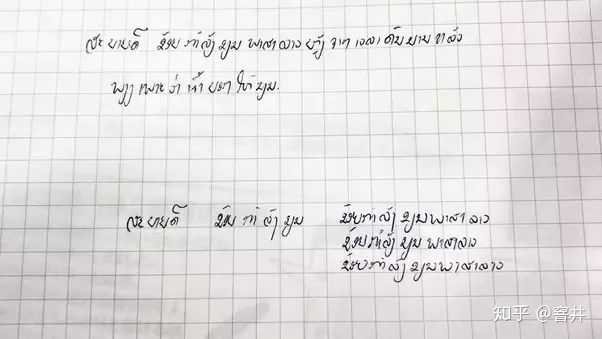 ສະບາຍດີ ຂ້ອຍກຳລັງຂຽນພາສາລາວ ຫຼັງຈາກເວລາດົນນານ
ພຽງເພາະວ່າ ໃຫ້ຂຽນ.
ສະບາຍດີ ຂ້ອຍ ກຳ ລັງ ຂຽນ ຂ້ອຍກຳລັງ ຂຽນພາສາ ລາວ
ຂ້ອຍກຳລັງ ຂຽນ ພາສາລາວ
ຂ້ອຍກຳລັງ ຂຽນພາສາລາວ
知乎 @睿井